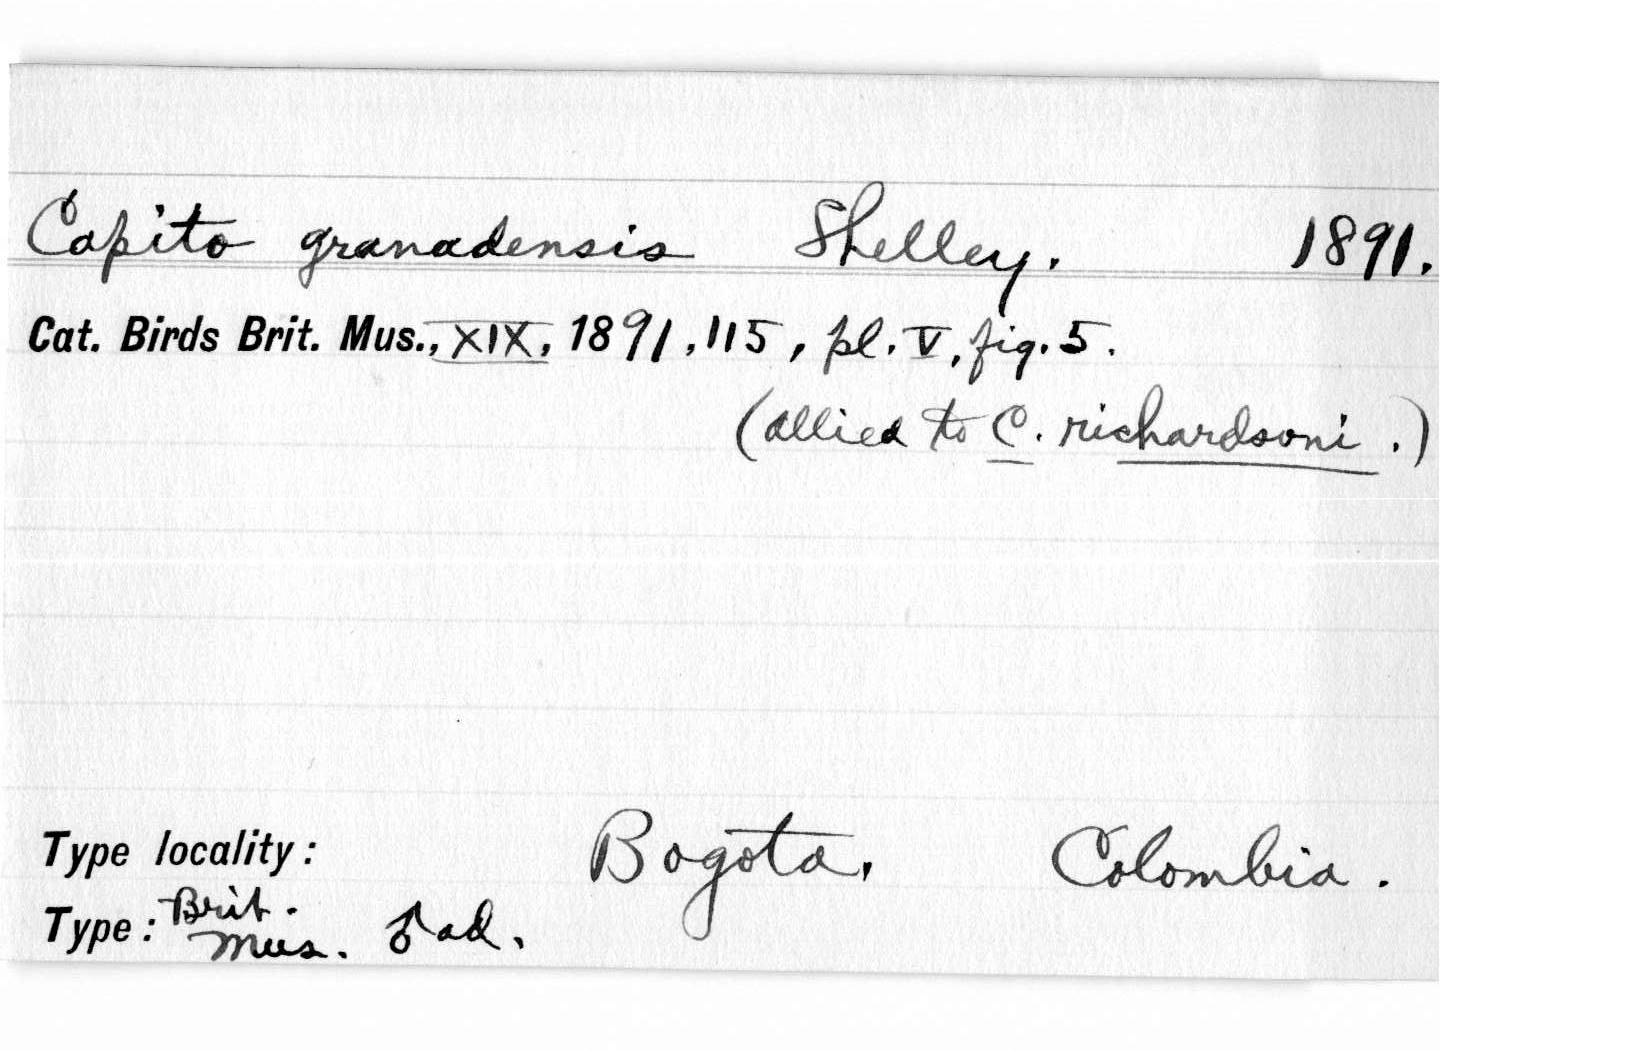 Capito granadensis Shelley. 1891.
Cat. Birds Brit. Mus., XIX, 1891, 115, pl. V, fig. 5.
(allied to C. richardsoni.)
Type locality: Bogota, Colombia.
Type: Brit. Mus. ♂ ad.